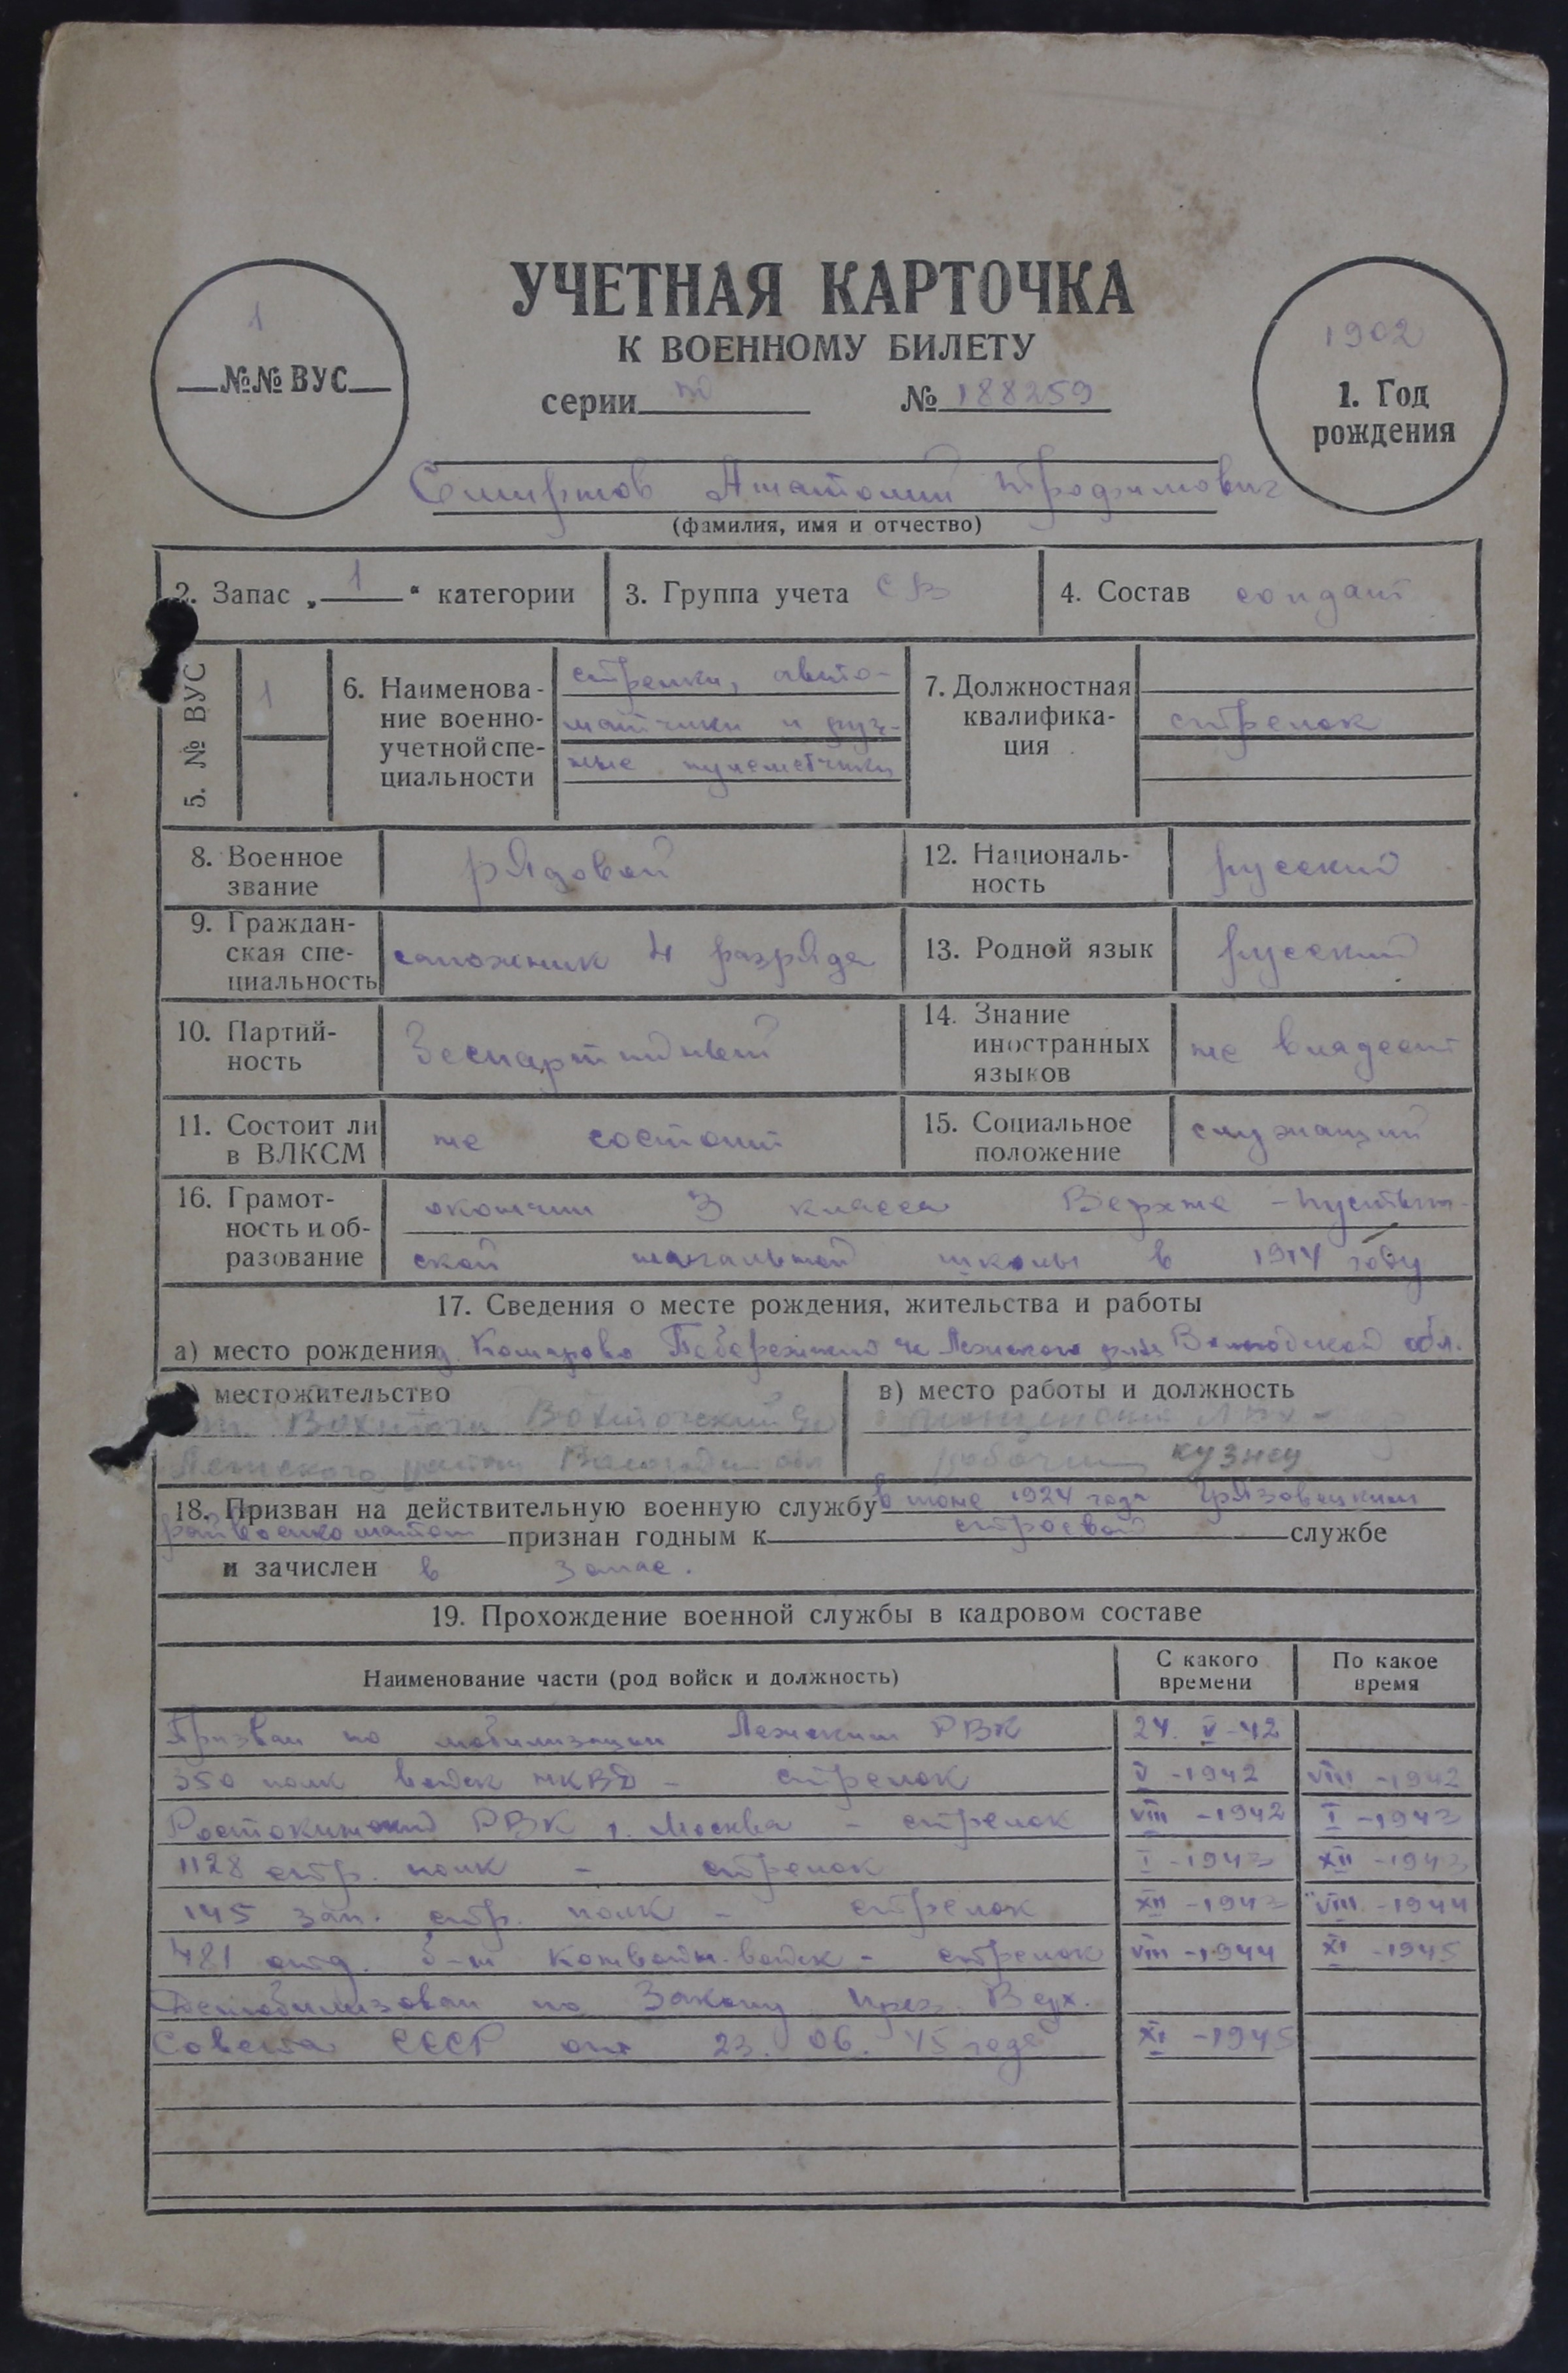 УЧЕТНАЯ КАРТОЧКА
К ВОЕННОМУ БИЛЕТУ
серии № 188259
1
№№ ВУС
1902
1. Год
рождения
Смирнов Анатолий Трофимович
(фамилия, имя и отчество)
2. Запас „ 1 “ категории
3. Группа учета СВ
4. Состав солдат
5. № ВУС
1
6. Наименова-
ние военно-
учетной спе-
циальности
стрелки, авто-
матчики и руч-
ные пулеметчики
7. Должностная
квалифика-
ция
стрелок
8. Военное
звание
рядовой
12. Националь-
ность
русский
9. Граждан-
ская спе-
циальность
сапожник 4 разряда
13. Родной язык
русский
10. Партий-
ность
беспартийный
14. Знание
иностранных
языков
не владеет
11. Состоит ли
в ВЛКСМ
не состоит
15. Социальное
положение
служащий
16. Грамот-
ность и об-
разование
окончил 3 класса Верхне-Пустын-
ской начальной школы в 1914 году
17. Сведения о месте рождения, жительства и работы
а) место рождения д. Комарово Лежского р-на Вологодской обл.
местожительство
ст. Вохтога Вохтожский
Лежского района Вологодской обл
в) место работы и должность
рабочий кузнец
18. Призван на действительную военную службу в июне 1924 года Грязовецким
райвоенкоматом признан годным к строевой службе
и зачислен в запас.
19. Прохождение военной службы в кадровом составе
Наименование части (род войск и должность)
С какого
времени
По какое
время
Призван по мобилизации Лежским РВК 24. V-42
350 полк войск НКВД - стрелок V-1942 VIII-1942
Ростокинский РВК г. Москва - стрелок VIII-1942 I-1943
1128 стр. полк - стрелок I-1943 XII-1943
145 зап. стр. полк - стрелок XII-1943 VIII-1944
481 отд. б-н конвойн. войск - стрелок VIII-1944 XI-1945
Демобилизован по Закону През. Верх.
Совета СССР от 23.06.45 года XI-1945